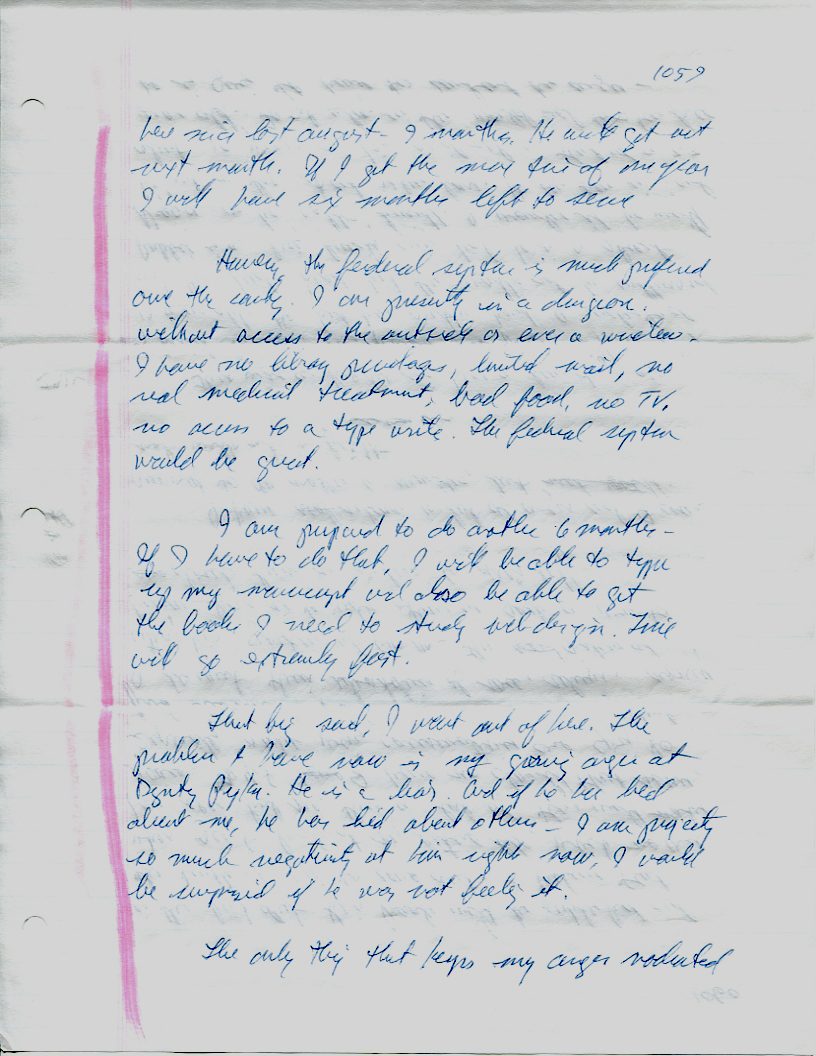 1059
here since last august - 9 months. He will get out
next month. If I get the max time of one year
I will have six months left to serve
However, the federal system is much preferred
over the county. I am presently in a dungeon.
without access to the outside or even a window.
I have no library privileges, limited mail, no
real medical treatment, bad food, no TV,
no access to a type write. The federal system
would be great.
I am prepared to do another 6 months -
If I have to do that, I will be able to type
up my manuscript and also be able to get
the books I need to study web design. Time
will go extremely fast.
That being said, I want out of here. The
problem I have now is my growing anger at
Deputy He is a liar. And if he has lied
about me, he has lied about others - I am projecting
so much negativity at him right now, I would
be surprised if he was not feeling it.
The only thing that keeps my anger